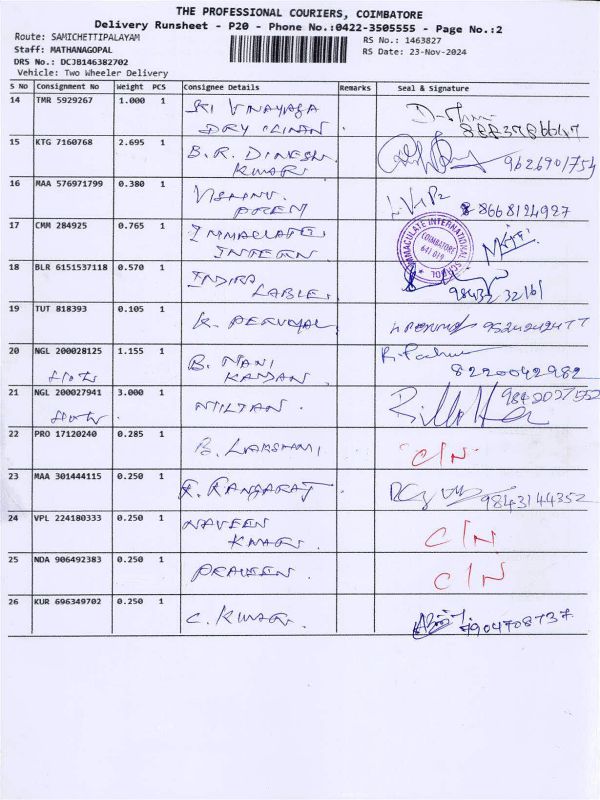 THE PROFESSIONAL COURIERS, COIMBATORE
Delivery Runsheet - P20 - Phone No.:0422-3505555 - Page No.:2
Route: SAMICHETTIPALAYAM
RS No.: 1463827
Staff: MATHANAGOPAL
RS Date: 23-Nov-2024
DRS No.: DCJB146382702
Vehicle: Two Wheeler Delivery
S No Consignment No Weight PCS Consignee Details Remarks Seal & Signature
14 TMR 5929267 1.000 1 SRI VINAYAGA
DRY
15 KTG 7160768 2.695 1 B.R. DINESH
KUMAR 9626901754
16 MAA 576971799 0.380 1 VISHNU
PREM 8668124927
17 CMM 284925 0.765 1 IMMACULATE
INTERN
IMMACULATE INTERNATIONAL SCHOOL
COIMBATORE
641 019
18 BLR 6151537118 0.570 1 INDIRA
LABLE 98432 32161
19 TUT 818393 0.105 1 K. PERUMAL
20 NGL 200028125 1.155 1 B. MANI
KANDAN. 8220042982
21 NGL 200027941 3.000 1 9842027552
22 PRO 17120240 0.285 1 B. LAKSHMI C/N
23 MAA 301444115 0.250 1 R. RANGARAJ 9843144352
24 VPL 224180333 0.250 1 NAVEEN
KUMAR C/N
25 NDA 906492383 0.250 1 PRAVEEN C/N
26 KUR 696349702 0.250 1 C. KUMAR. 7904708737